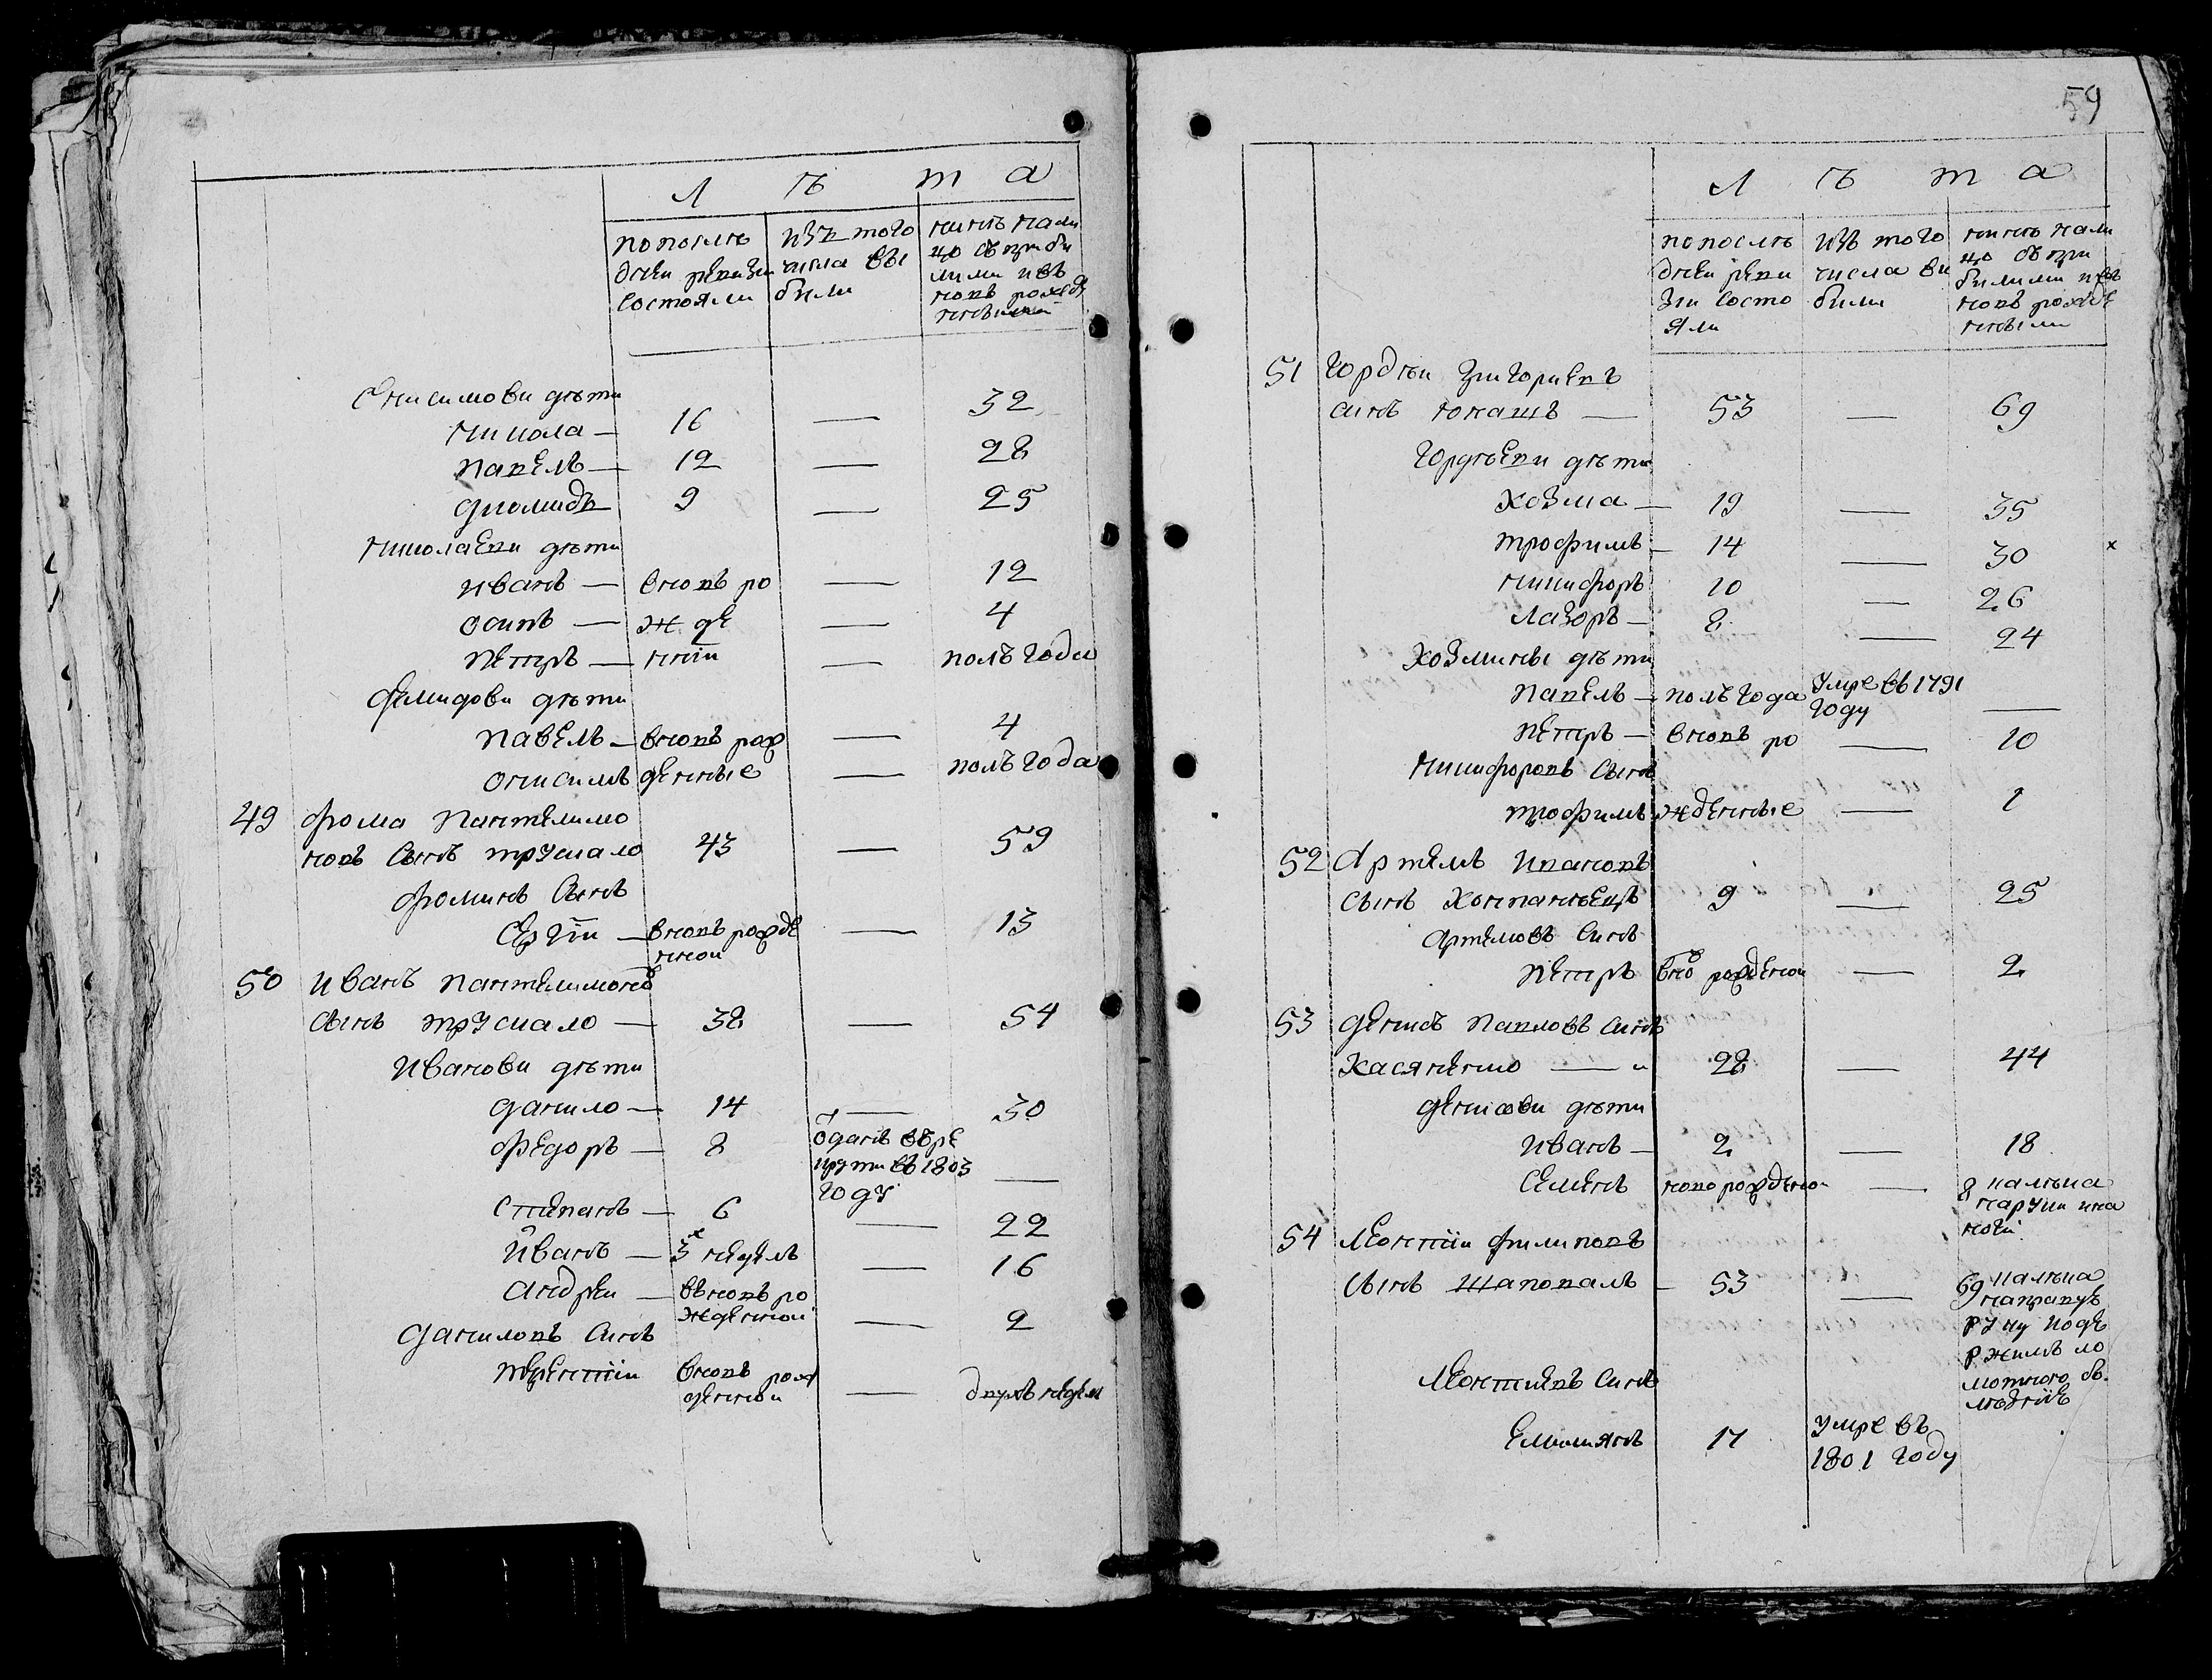 Л ѣ т а
попослѣ
дней ревизи
состояли
изъ того
числа вы
были
нинѣ нали
цо съ при бы
лими и въ
новъ рожд
Онисимови дѣти
никола — 16 — 32
павелъ — 12 — 28
диомидъ 9 — 25
николаеви дѣти
иванъ — вновь ро — 12
осипъ — ж де — 4
петръ — нніи — полъ года
демидови дѣти
павелъ — вновь рож — 4
онисимъ денные — полъ года
49 фома пантелимо
новъ сынъ трускало 43 — 59
фоминъ сынъ
сергіи — вновь рожде — 13
нной
50 иванъ пантелимоно
сынъ трускало — 38 — 54
ивановы дѣти
данило — 14 — 30
федоръ — 8 ѿданъ въ ре
круты въ 1803 —
году
степанъ — 6 — 22
иванъ — 3 недель — 16
андреи — въновь ро
жденной — 2
даниловъ синъ
терентіи вновь рож
денной — двухъ недел
59
Л ѣ т а
попослѣ
дней реви
зіи состо
яли
изъ того
числа ви
были
нинѣ нали
цо съ при
билими и въ
новъ рожде
нными
51 Гордѣи григориевъ
синъ юнашъ — 53 — 69
гордѣеви дѣти
козма — 19 — 35
трофимъ — 14 — 30 x
никифоръ 10 — 26
лазоръ — 8 — 24
козмины дѣти
павелъ — полъ года умре въ 1791
году —
петръ — вновь ро — 10
никифоровъ сынъ
трофимъ жденные — 1
52 Артемъ ивановъ
сынъ костанѣецъ 9 — 25
артемовъ синъ
петръ вно рожденой — 2
53 денисъ павловъ синъ
касяненко — 28 — 44
денисови дѣти
иванъ — 2 — 18
семенъ новорожденой — 8 калѣка
на руки и на
ноги
54 Леонтіи филиповъ
сынъ шаповалъ — 53 — 69 калѣка
на праву
руку и оде
ржимъ ло
мотною бо
лѣзніе
леонтиевъ синъ
емилиянъ 17 умре въ
1801 году